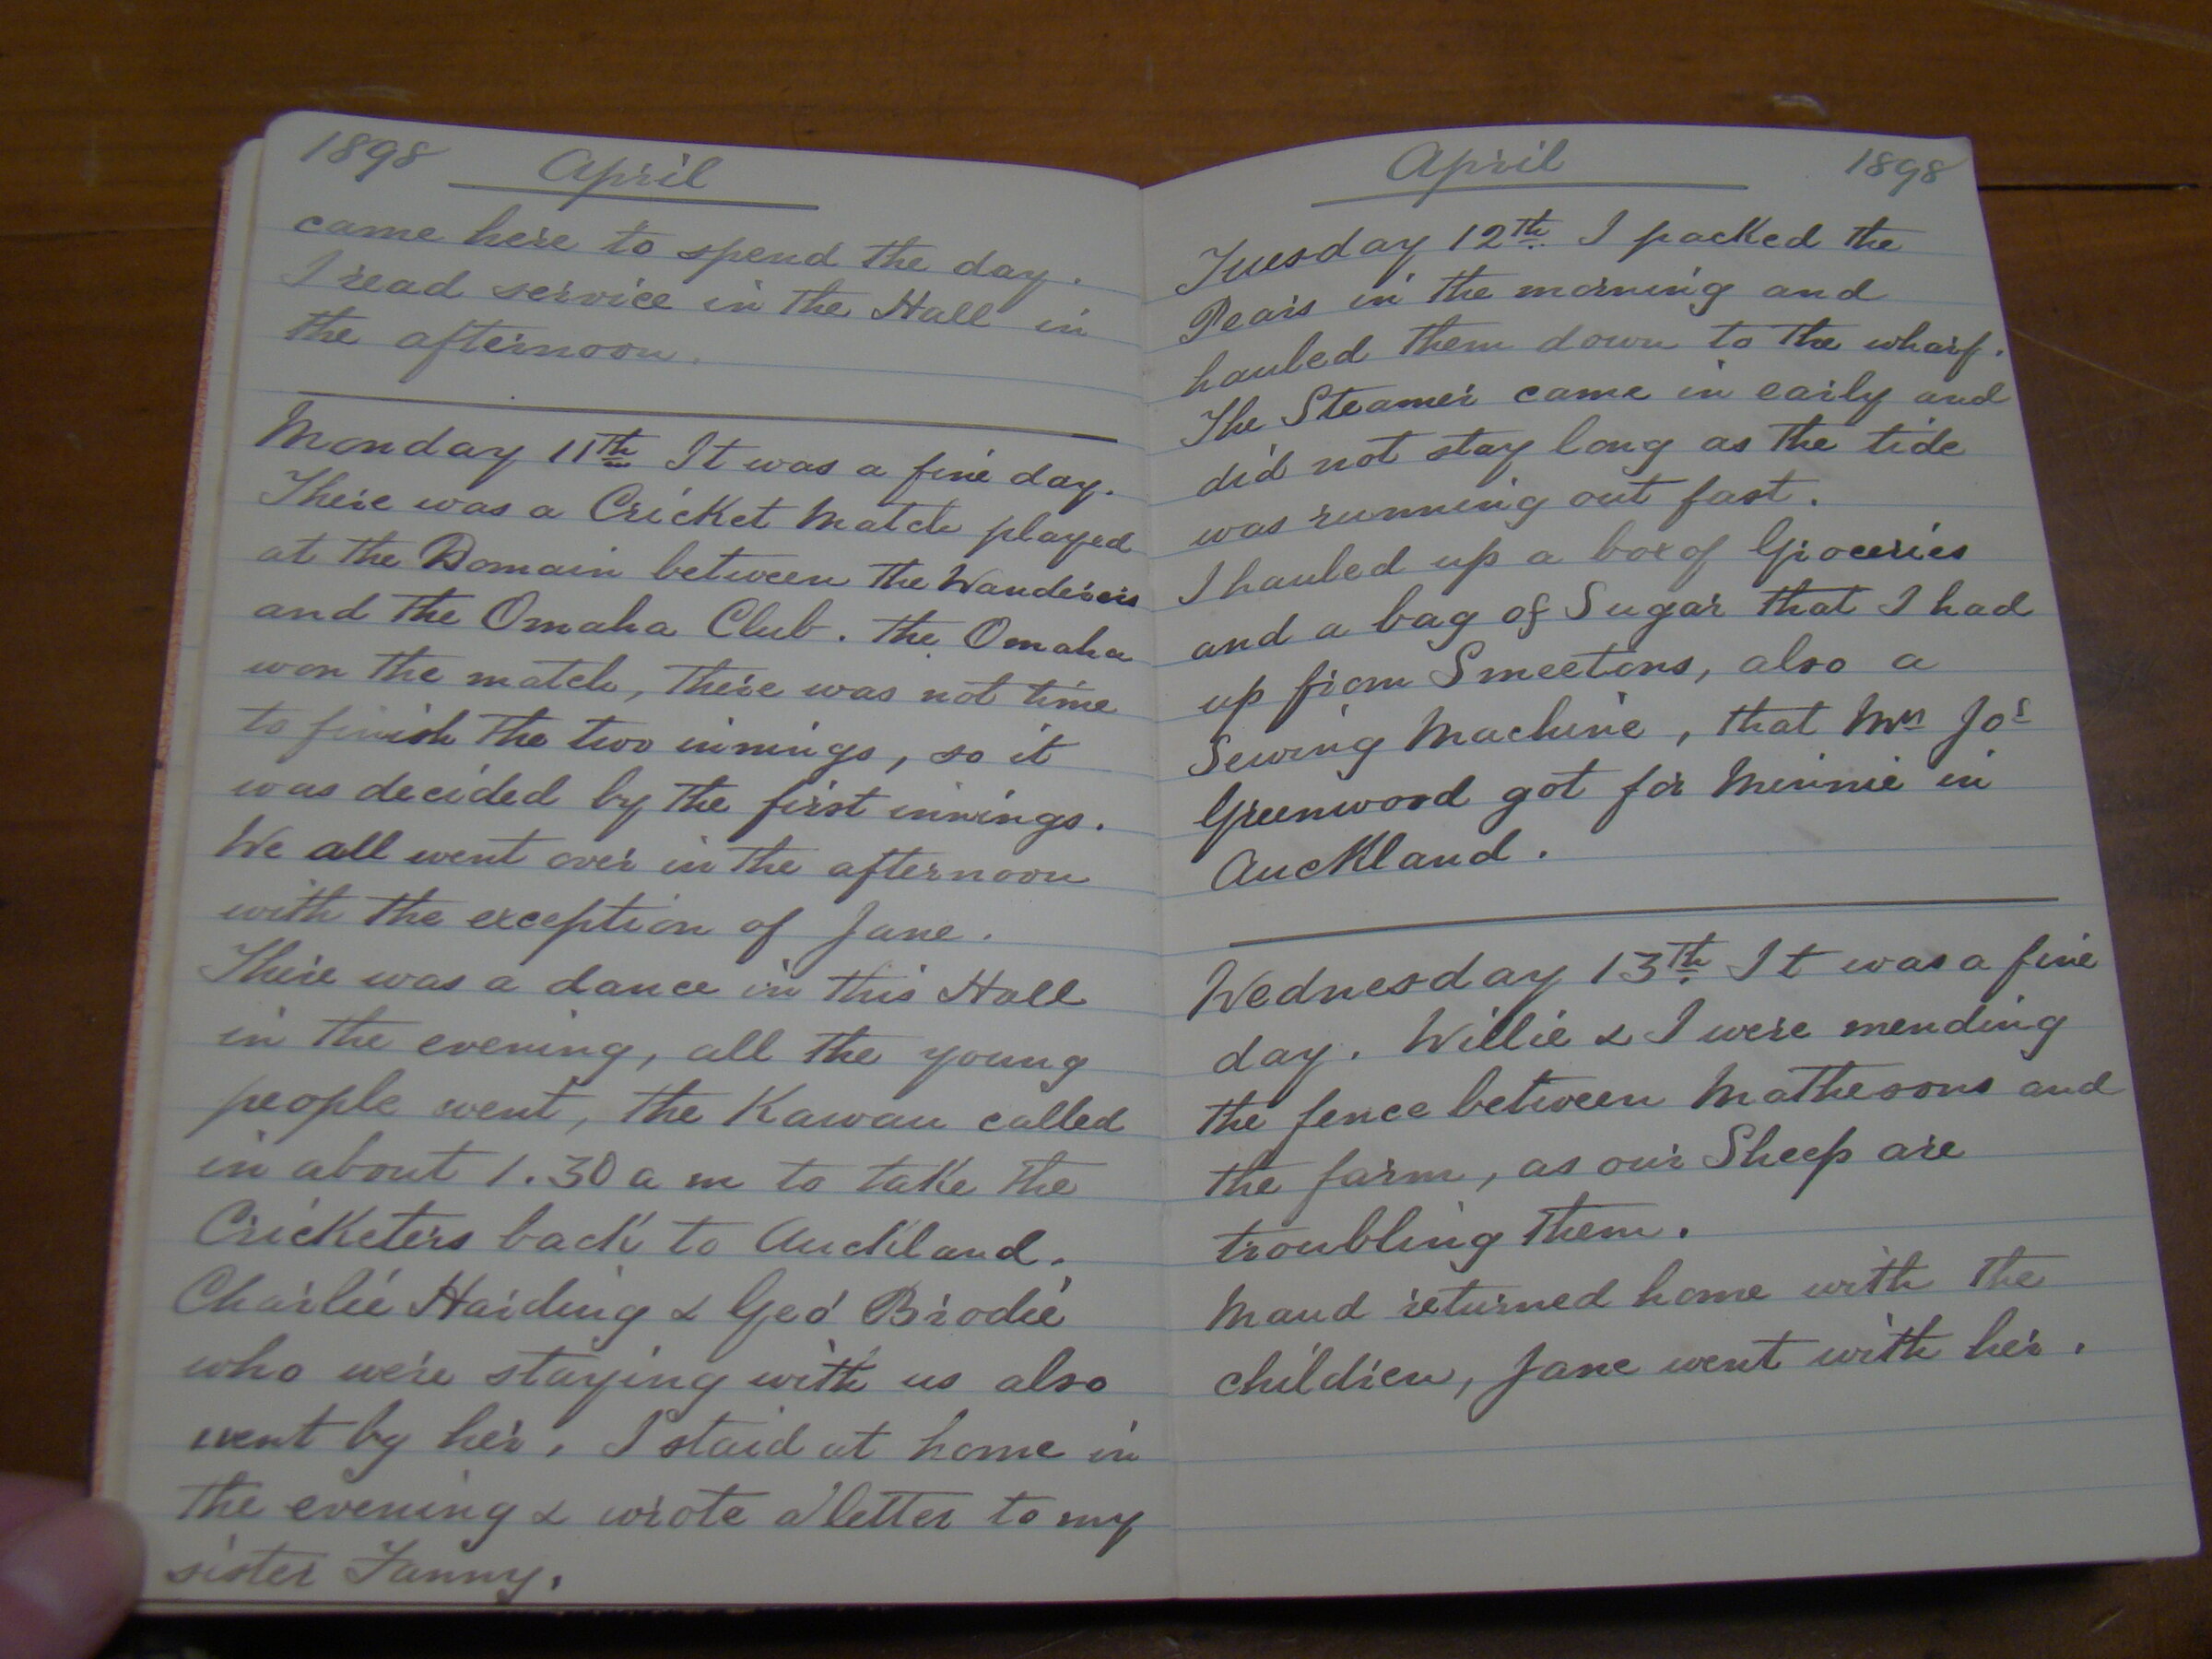 1898 April
came here to spend the day.
I read service in the Hall in
the afternoon.
Monday 11th It was a fine day.
There was a Cricket Match played
at the Domain between the Wanderers
and the Omaha Club. the Omaha
won the match, there was not time
to finish the two innings, so it
was decided by the first innings.
We all went over in the afternoon
with the exception of Jane.
There was a dance in this Hall
in the evening, all the young
people went, the Kawau called
in about 1.30 a m to take the
Cricketers back to Auckland.
Charlie Harding & Geo Brodie
who were staying with us also
went by her, I staid at home in
the evening & wrote a letter to my
sister Fanny.
April 1898
Tuesday 12th. I packed the
Pears in the morning and
hauled them down to the wharf.
The Steamer came in early and
did not stay long as the tide
was running out fast.
I hauled up a box of Groceries
and a bag of Sugar that I had
up from Smeetons, also a
Sewing Machine, that Mrs Jos
Greenwood got for Minnie in
Auckland.
Wednesday 13th. It was a fine
day. Willie & I were mending
the fence between Mathesons and
the farm, as our Sheep are
troubling them.
Maud returned home with the
children, Jane went with her.